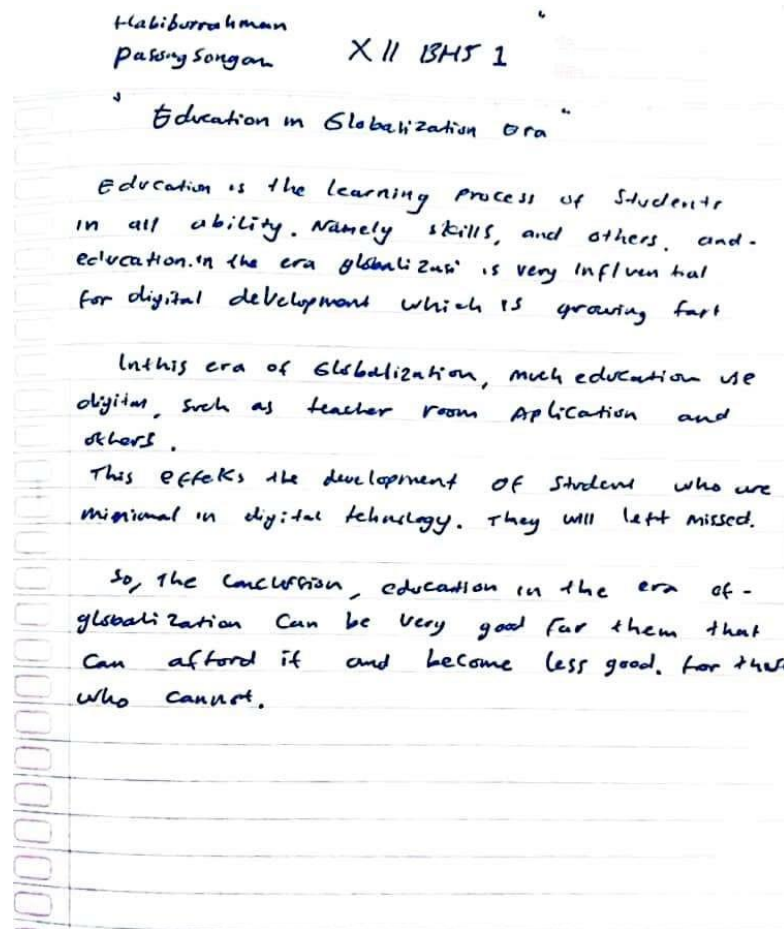 Habiburrahman
Passing Songan XII BHS 1
"Education in Globalization Era"
Education is the learning process of students
in all ability. Namely skills, and others. and-
education.in the era globalizasi is very influential
for digital development which is growing fast
Inthis era of Globalization, much education use
digital, such as teacher room Aplication and
others.
This effeks the development of student who are
minimal in digital tehnology. They will left missed.
So, the Conclussion, education in the era of-
globalization Can be very good for them that
Can afford it and become less good. for those
who cannot.